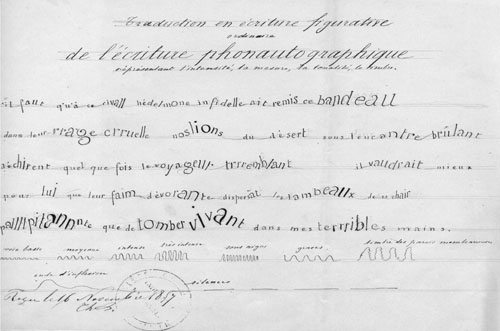 Traduction en écriture figurative
ordinaire
de l'écriture phonautographique
représentant l'intensité, la mesure, la tonalité, le timbre.
s'il faut qu'à ce rivall hédelmone infidelle ait remis ce bandeau
dans leur rrage crruelle nos lions du désert sous leur antre brûlant
déchirent quel que fois le voyageurr trrremblant il vaudrait mieux
pour lui que leur faim dévorante dispersât les lambeaux de sa chair
palllpitannnte que de tomber vivant dans mes terrribles mains.
voix basse moyenne intense très intense sons aigus graves timbre des parois membraneuses
onde d'inflexion silences
Reçu le 16 Novembre 1857